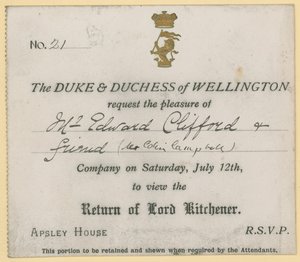 No. 21
The DUKE & DUCHESS of WELLINGTON
request the pleasure of
Mr Edward Clifford &
friend (Mr Colin Campbell)
Company on Saturday, July 12th,
to view the
Return of Lord Kitchener.
APSLEY HOUSE R.S.V.P.
This portion to be retained and shewn when required by the Attendants.